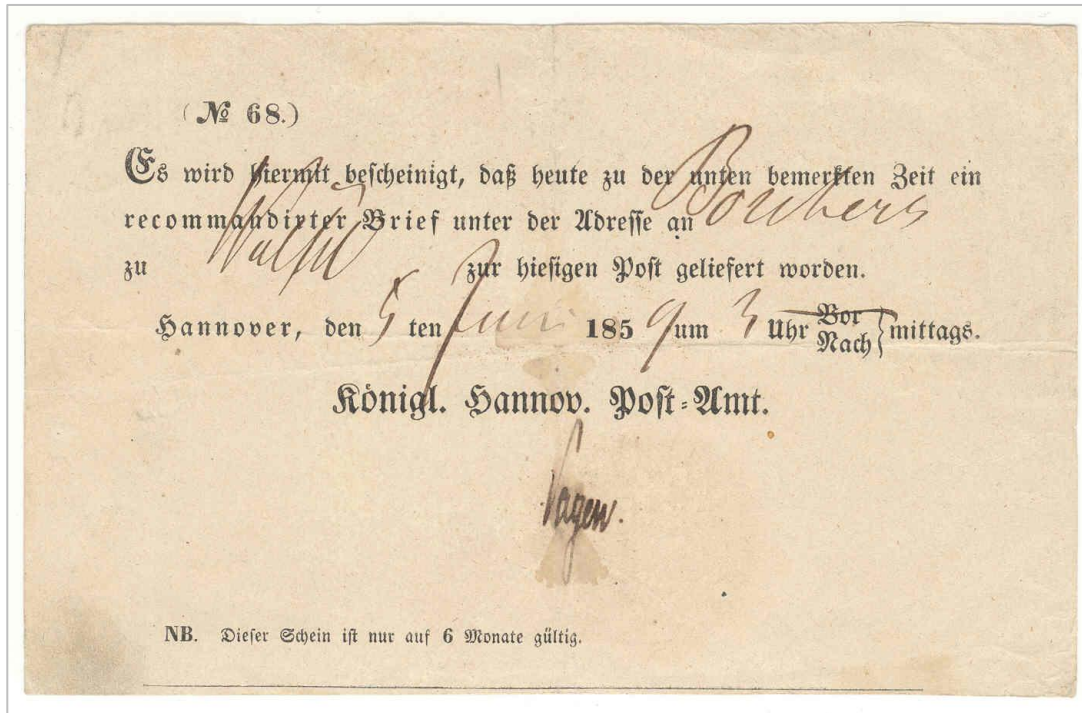 (№ 68.)
Es wird hiermit bescheinigt, daß heute zu der unten bemerkten Zeit ein
recommandirter Brief unter der Adresse an
zu zur hiesigen Post geliefert worden.
Hannover, den 5 ten Juni 1859 um 3 Uhr Vor Nach mittags.
Königl. Hannov. Post-Amt.
NB. Dieser Schein ist nur auf 6 Monate gültig.